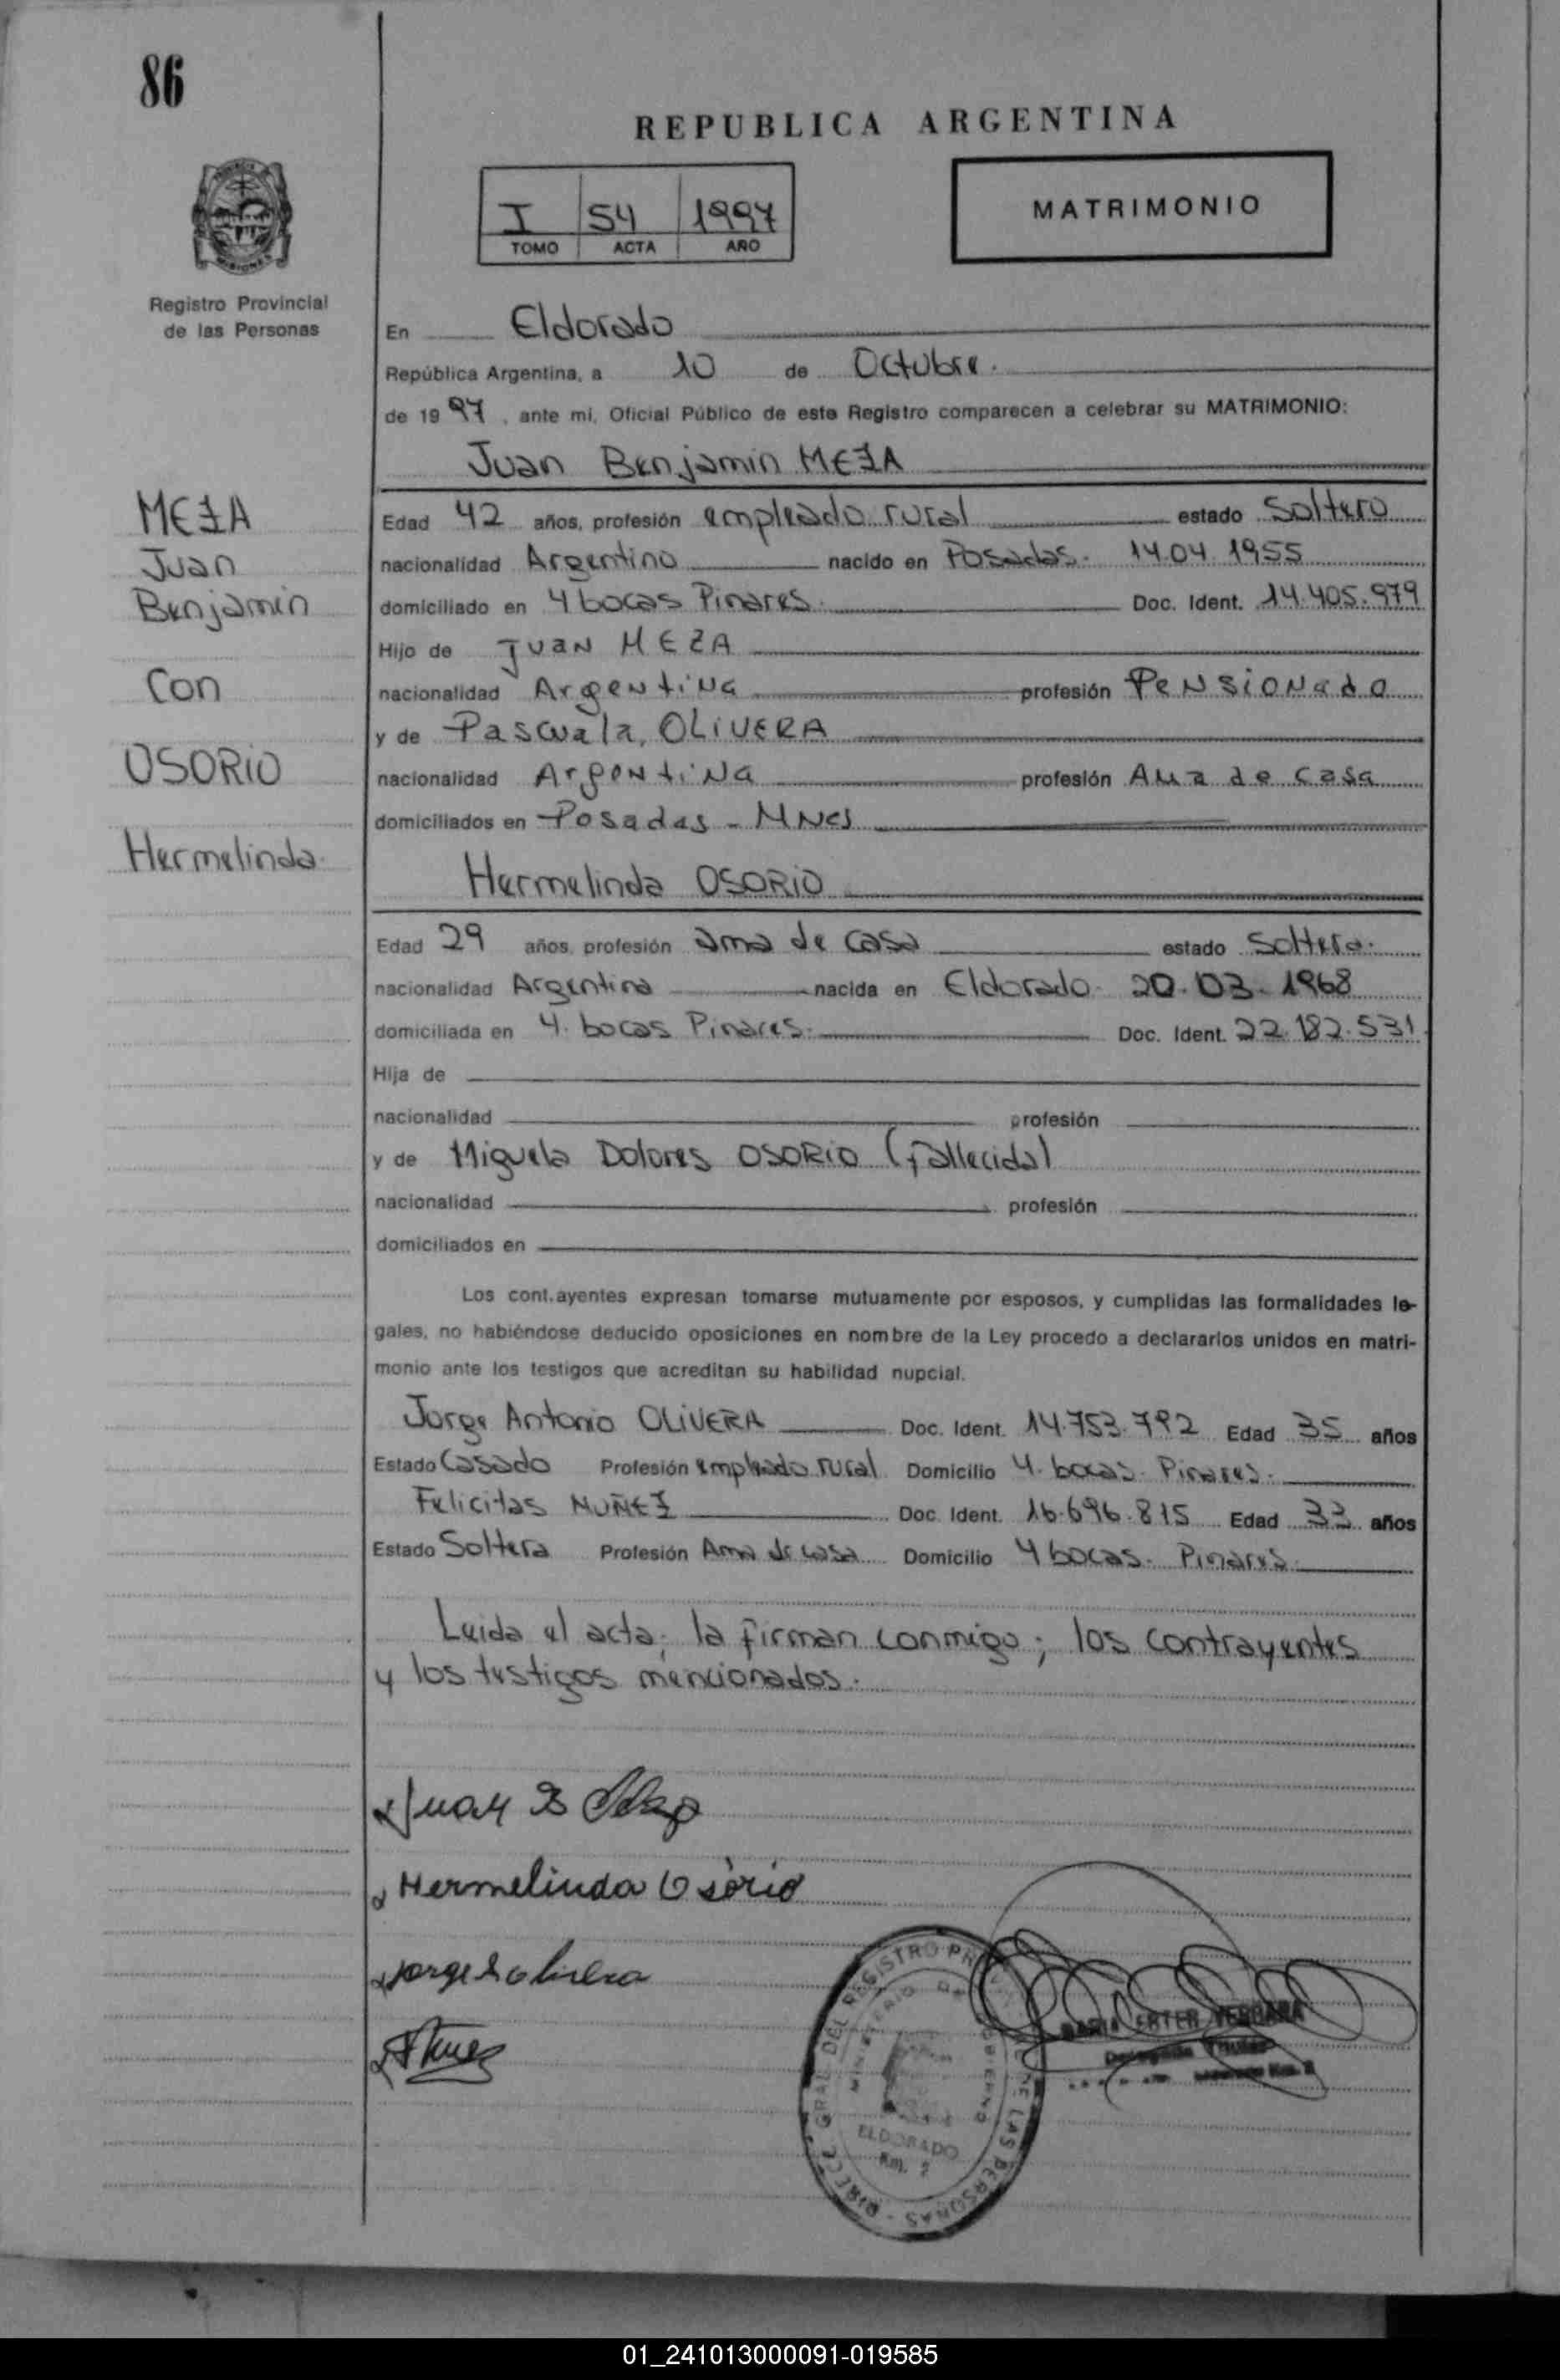 86
REPUBLICA ARGENTINA
I 54 1997
TOMO ACTA AÑO
MATRIMONIO
Registro Provincial
de las Personas
En Eldorado
República Argentina, a 10 de Octubre.
de 1997, ante mi, Oficial Público de este Registro comparecen a celebrar su MATRIMONIO:
Juan Benjamin MEZA
MEZA
Juan
Benjamin
Con
OSORIO
Hermelinda.
Edad 42 años, profesión empleado rural estado Soltero
nacionalidad Argentino nacido en Posadas. 14.04.1955
domiciliado en 4 bocas Pinares. Doc. Ident. 14.405.979
Hijo de Juan MEZA
nacionalidad Argentina profesión Pensionado
y de Pascuala, OLIVERA
nacionalidad Argentina profesión Ama de casa
domiciliados en Posadas - Mnes
Hermelinda OSORIO
Edad 29 años, profesión ama de casa estado Soltera.
nacionalidad Argentina nacida en Eldorado. 20.03.1968
domiciliada en 4. bocas Pinares. Doc. Ident. 22.182.531.
Hija de
nacionalidad profesión
y de Miguela Dolores OSORIO (fallecida)
nacionalidad profesión
domiciliados en
Los cont.ayentes expresan tomarse mutuamente por esposos, y cumplidas las formalidades le-
gales, no habiéndose deducido oposiciones en nombre de la Ley procedo a declararlos unidos en matri-
monio ante los testigos que acreditan su habilidad nupcial.
Jorge Antonio OLIVERA Doc. Ident. 14.753.792 Edad 35 años
Estado Casado Profesión empleado rural Domicilio 4. bocas. Pinares.
Felicitas NUÑEZ Doc. Ident. 16.696.815 Edad 33 años
Estado Soltera Profesión Ama de casa Domicilio 4 bocas. Pinares.
Leida el acta; la firman conmigo; los contrayentes
y los testigos mencionados.
Juan B
Hermelinda Osorio
Jorge A olivera
DIRECC. GRAL. DEL REGISTRO PROVINCIAL DE LAS PERSONAS
MINISTERIO DE GOBIERNO
ELDORADO
Km. 2
VERGARA
01_241013000091-019585